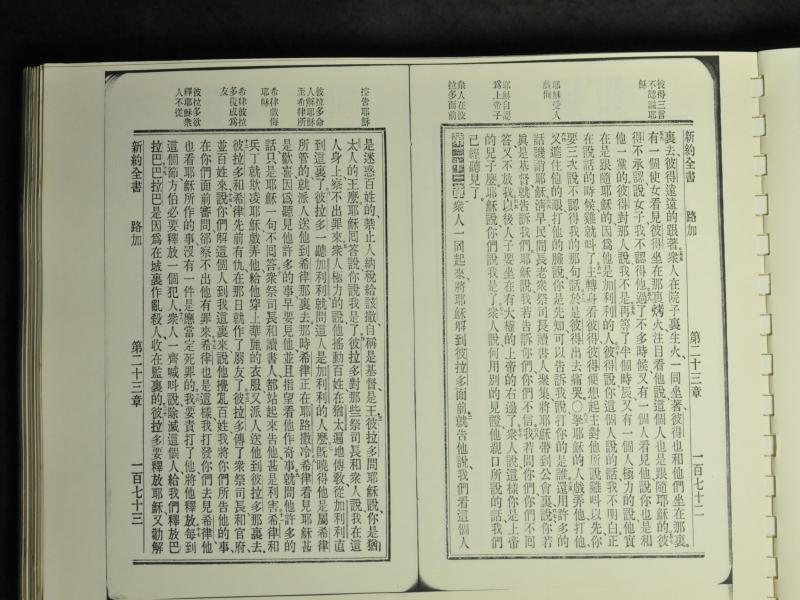 彼得三言
不認識耶
穌
耶穌受人
戲侮
耶穌自認
爲上帝子
衆人在彼
拉多面前
第二十三章
一百七十二
裏去彼得遠遠的跟著衆人在院子裏生火一同坐著彼得也和他們坐在那裏
有一個使女看見彼得坐在那裏烤火注目看他說這個人也是跟隨耶穌的彼
得不承認說女子我不認得他過了不多時候又有一個人看見他說你也是和
他一黨的彼得對那人說我不是再等了半個時辰又有一個人極力的說他實
在是跟隨耶穌的因爲他是加利利的人彼得說你這個人說的話我不明白正
在說話的時候雞就叫了主轉身看彼得彼得便想起主對他所說雞叫以先你
要三次說不認得我的那句話於是彼得出去痛哭〇拏耶穌的人戲弄他打他
又遮住他的眼打他的臉說你是先知可以告訴我說打你的是誰還用許多的
話譏誚耶穌清早民間長老衆祭司長讀書人衆集將耶穌帶到公會裏說你若
眞是基督就告訴我們耶穌說我若告訴你們你們不信我若問你們你們不回
答又不放我以後人子要坐在有大權的上帝的右邊了衆人說這樣你是上帝
的兒子麽耶穌說你們說我是了衆人說何用別的見證他親口所說的話我們
已經聽見了
第二十三章衆人一同起來將耶穌解到彼拉多面前就告他說我們看這個人
控告耶穌
彼拉多命
人解耶穌
至希律所
希律戲侮
耶穌
希律彼拉
多復成爲
友
彼拉多欲
釋耶穌衆
人不從
是迷惑百姓的禁止人納稅給該撒自稱是基督是王彼拉多問耶穌說你是猶
太人的王麽耶穌回答說你說我是了彼拉多對那些祭司長和衆人說我在這
人身上察不出罪來衆人極力的說他搖動百姓在猶太遍地傳教從加利利直
到這裏了彼拉多一聽加利利就問這人是加利利的人麽旣曉得他是屬希律
所管的就派人送他到希律那裏去那時希律正在耶路撒冷希律看見耶穌甚
是歡喜因爲聽見他許多的事早要見他並且指望看他作奇事就問他許多的
話只是耶穌一句不回答衆祭司長和讀書人都站起來告他甚是利害希律和
兵丁就欺凌耶穌戲弄他給他穿上華麗的衣服又派人送他到彼拉多那裏去
彼拉多和希律先前有仇在那日就作了朋友了彼拉多傳了衆祭司長和官府
並百姓來說你們解這個人到我這裏來說他攪亂百姓我將你們所告他的事
在你們面前審問卻察不出他有罪來希律也是這樣我打發你們去見希律他
也看耶穌所作的事沒有一件是應當定死罪的我要責打了他將他釋放每到
這個節方伯必要釋放一個犯人衆人一齊喊叫說除滅這個人給我們釋放巴
拉巴巴拉巴是因爲在城裏作亂殺人收在監裏的彼拉多要釋放耶穌又勸解
新約全書
路加
第二十三章
一百七十三